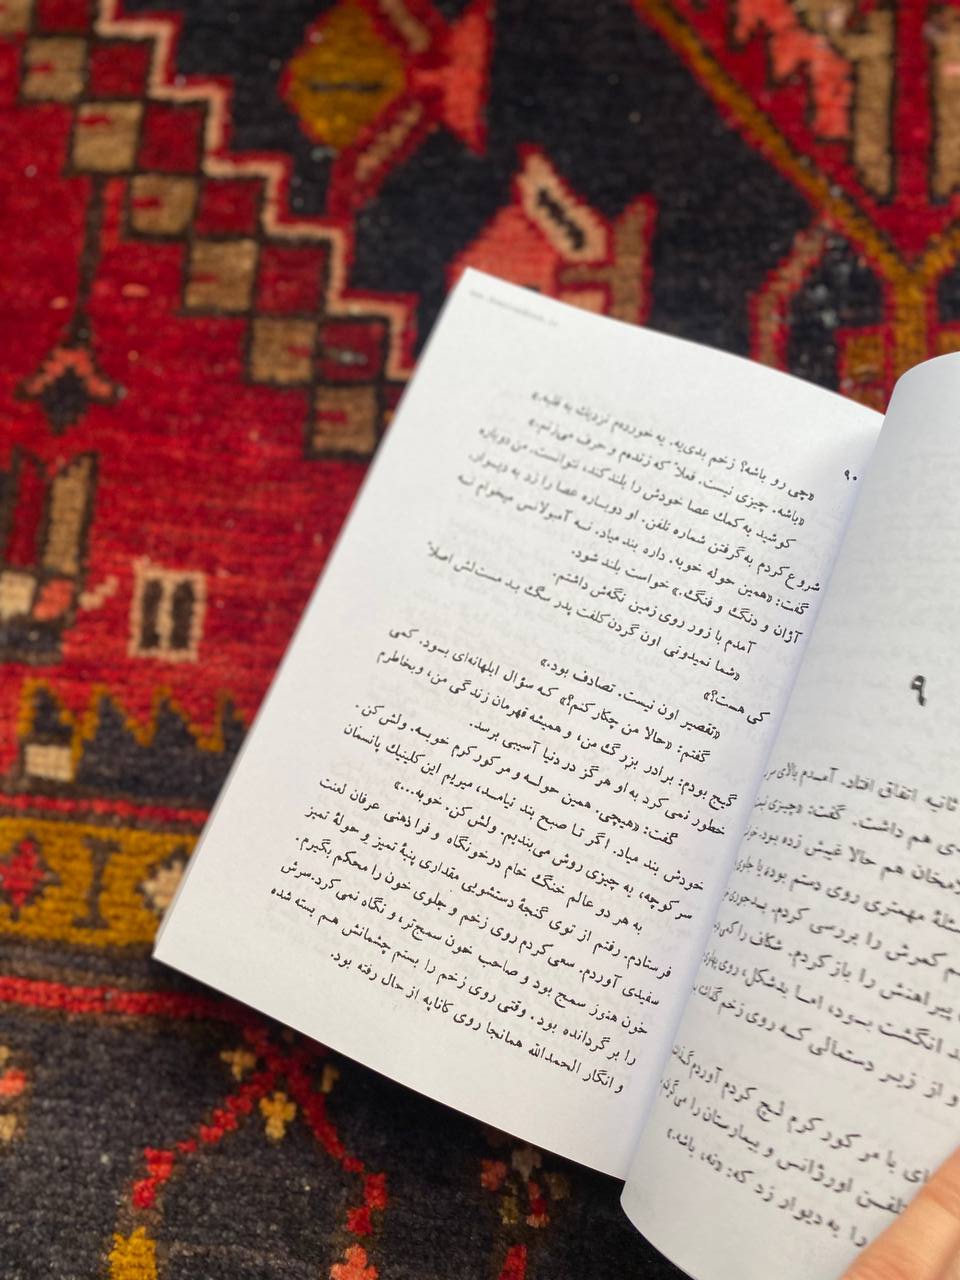 ۹
ثانیه اتفاق افتاد. آمدم بالای
هم داشت. گفت: «چیزی
هم حالا غیش زده بود.
مهمتری روی دستم بود، یا جلوی
کمرش را بررسی کردم.
پیراهنش را باز کردم. شکاف را
انگشت بود، اما بدشکل، روی
و از زیر دستمالی که روی زخم
با مر کور کرم لج کردم آوردم
تلفن اورژانس و بیمارستان را
را به دیوار زد که: «نه، باشه.»
۹۰
«چی رو باشه؟ زخم بدی‌یه. یه خورده‌م نزدیك به قلبه.»
«باشه. چیزی نیست. فعلاً که زنده‌م و حرف می‌زنم.»
کوشید به کمك عصا خودش را بلند کند، نتوانست. من دوباره
شروع کردم به گرفتن شماره تلفن. او دوباره عصا را زد به دیوار.
گفت: «همین حوله خوبه. داره بند میاد. نه آمبولانس میخوام نه
آژان و دنگ و فنگ.» خواست بلند شود.
آمدم با زور روی زمین نگه‌ش داشتم.
«شما نمیدونی اون گردن کلفت پدر سگ بد مست‌لش اصلاً
کی هست؟»
«تقصیر اون نیست. تصادف بود.»
گفتم: «حالا من چکار کنم؟» که سؤال ابلهانه‌ای بود. کمی
گیج بودم: برادر بزرگ من، و همیشه قهرمان زندگی من، و بخاطرم
خطور نمی کرد به او هرگز در دنیا آسیبی برسد.
گفت: «هیچی. همین حوله و مر کور کرم خوبه. ولش کن.
خودش بند میاد. اگر تا صبح بند نیامد، میریم این کلینیك پانسمان
سر کوچه، یه چیزی روش می‌بندیم. ولش کن. خوبه...»
به هر دو عالم خنگ خام درخونگاه و فراذهنی عرفان لعنت
فرستادم. رفتم از توی گنجهٔ دستشویی مقداری پنبهٔ تمیز و حولهٔ تمیز
سفیدی آوردم. سعی کردم روی زخم و جلوی خون را محکم بگیرم.
خون هنوز سمج بود و صاحب خون سمج‌تر، و نگاه نمی کرد. سرش
را بر گردانده بود. وقتی روی زخم را بستم چشمانش هم بسته شده
و انگار الحمدالله همانجا روی کاناپه از حال رفته بود.